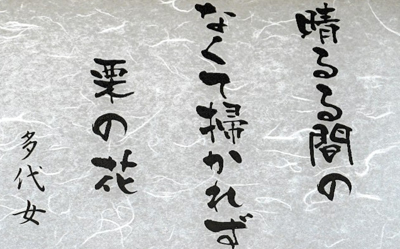 晴るる間の
なくて掃かれず
栗の花
多代女